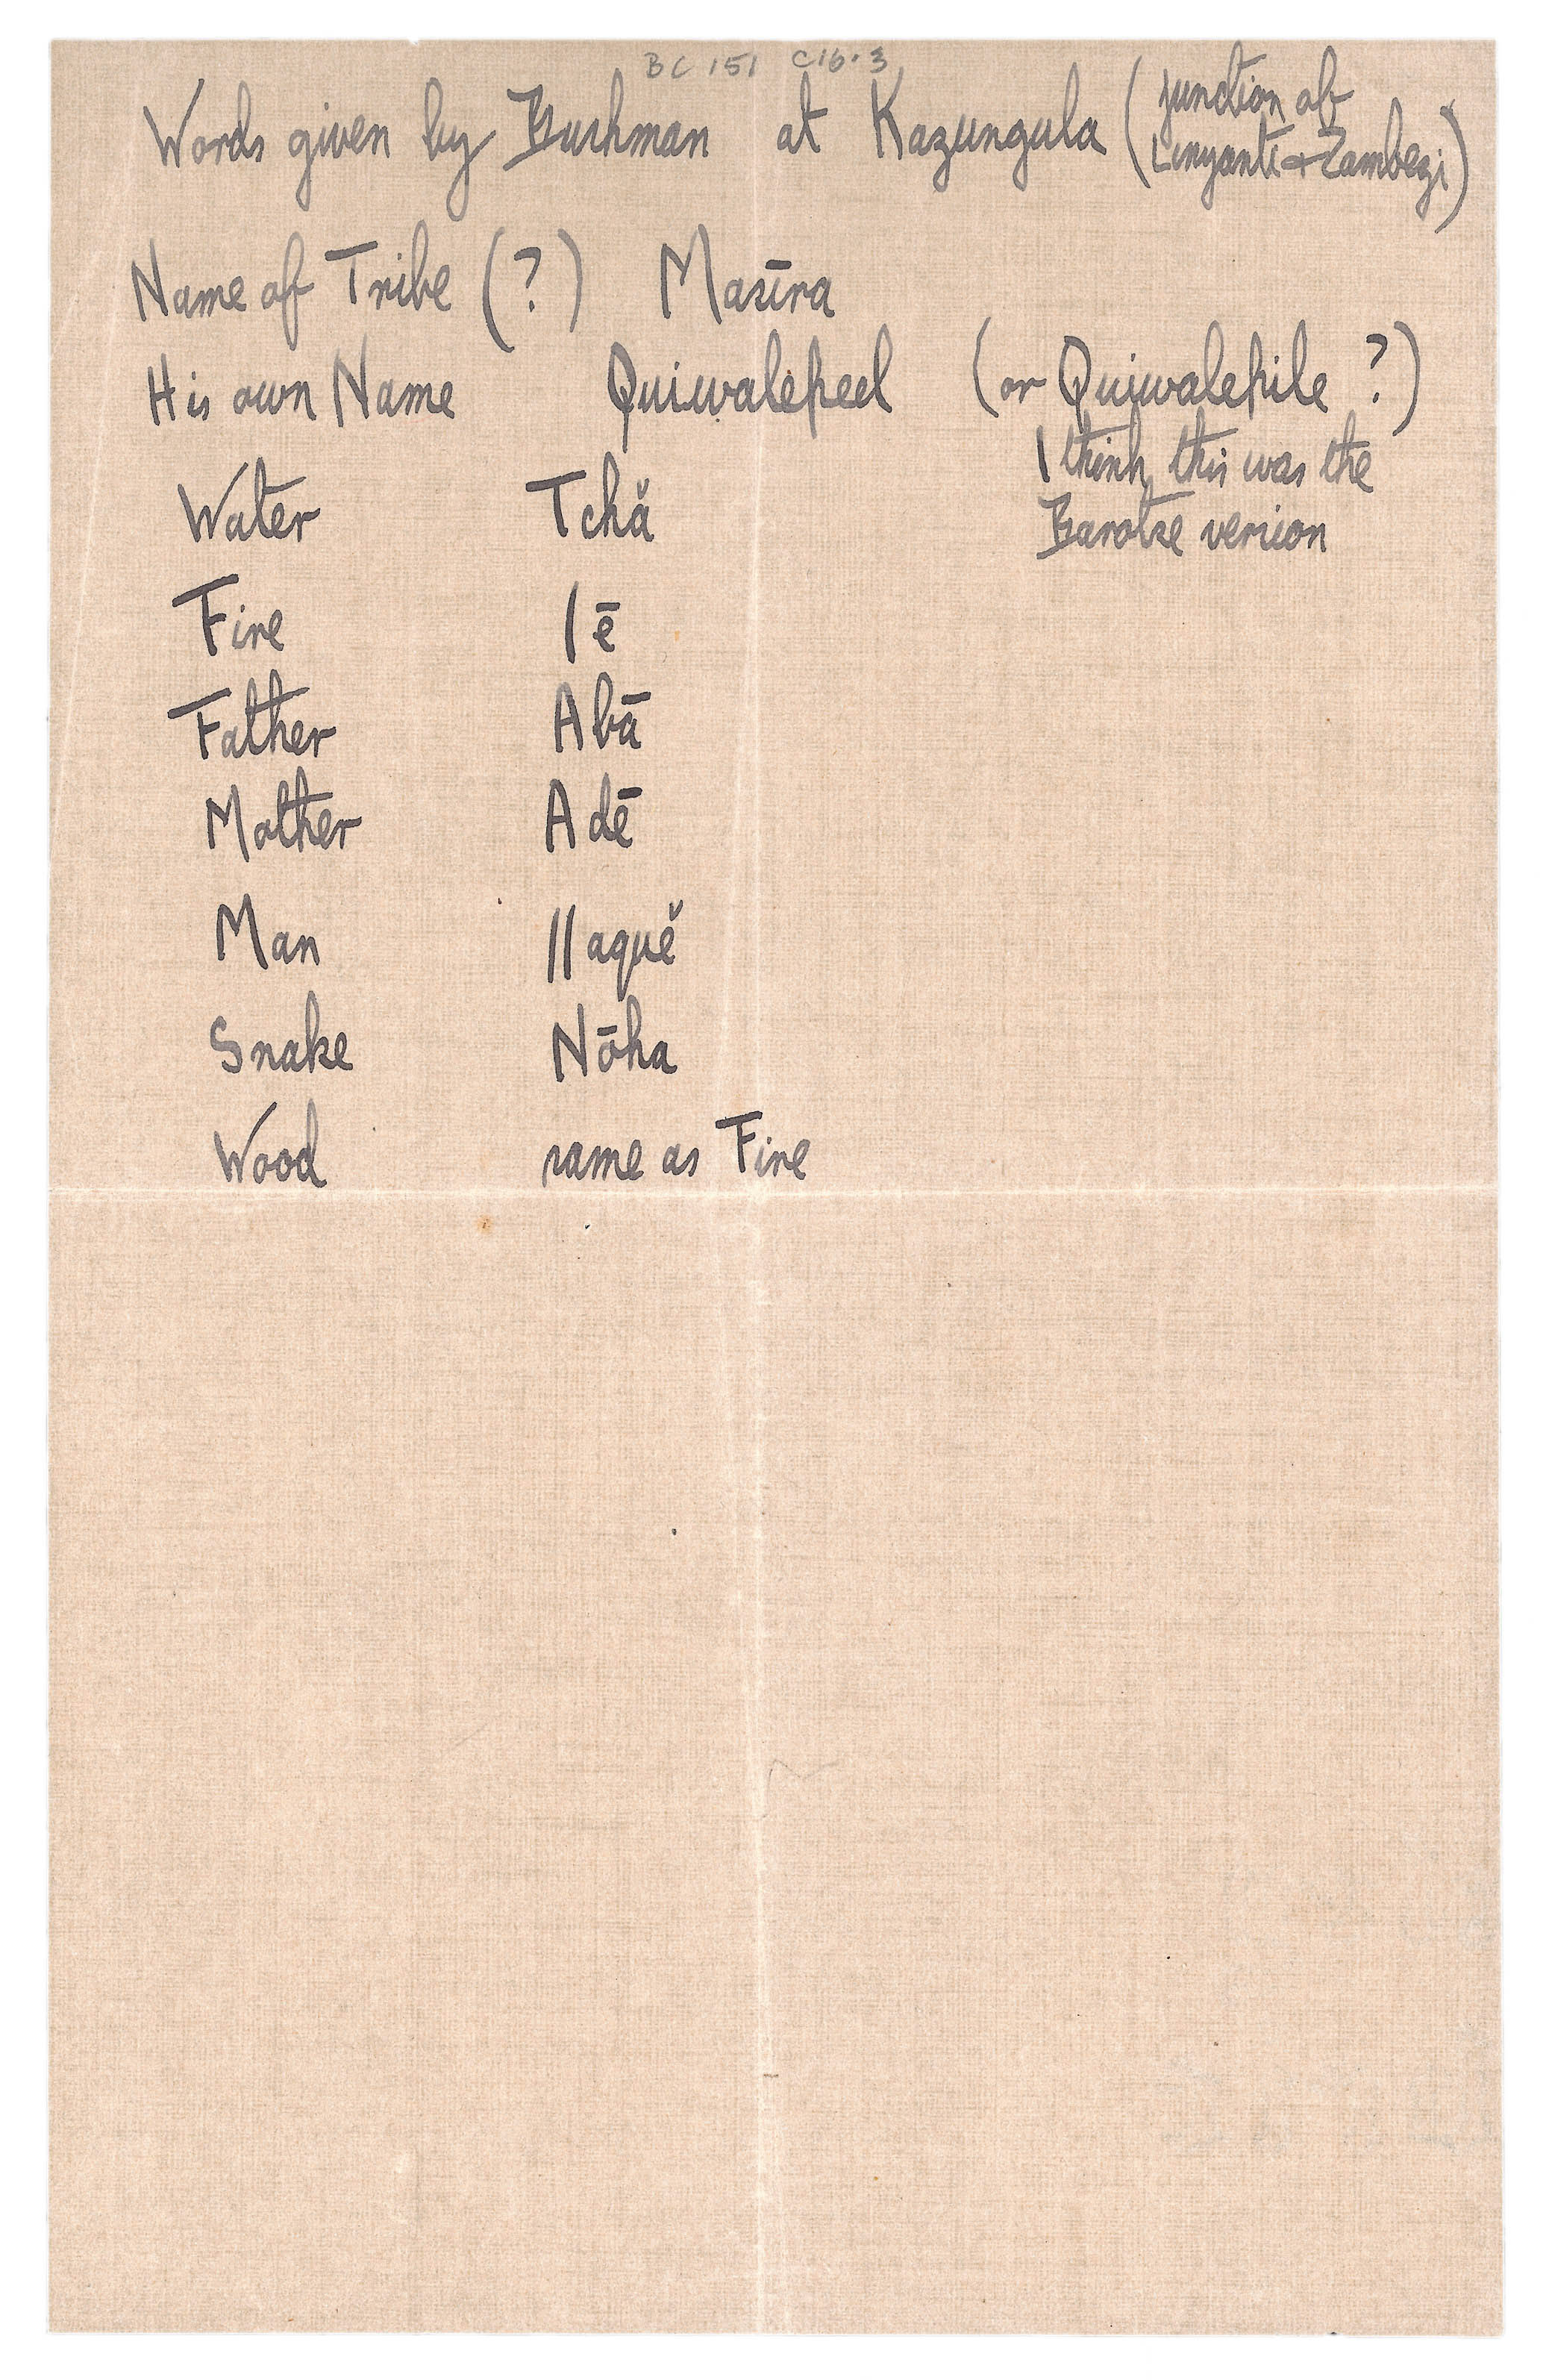 BC 151 C16.3
Words given by Bushman at Kazungula (junction of Linyanti & Zambezi)
Name of Tribe (?) Masīra
His own Name Quiwalepeel (or Quiwalepile ?)
I think this was the
Barotse version
Water Tchă
Fire |ē
Father Abā
Mother Adē
Man ||aquĕ
Snake Nōha
Wood same as Fire